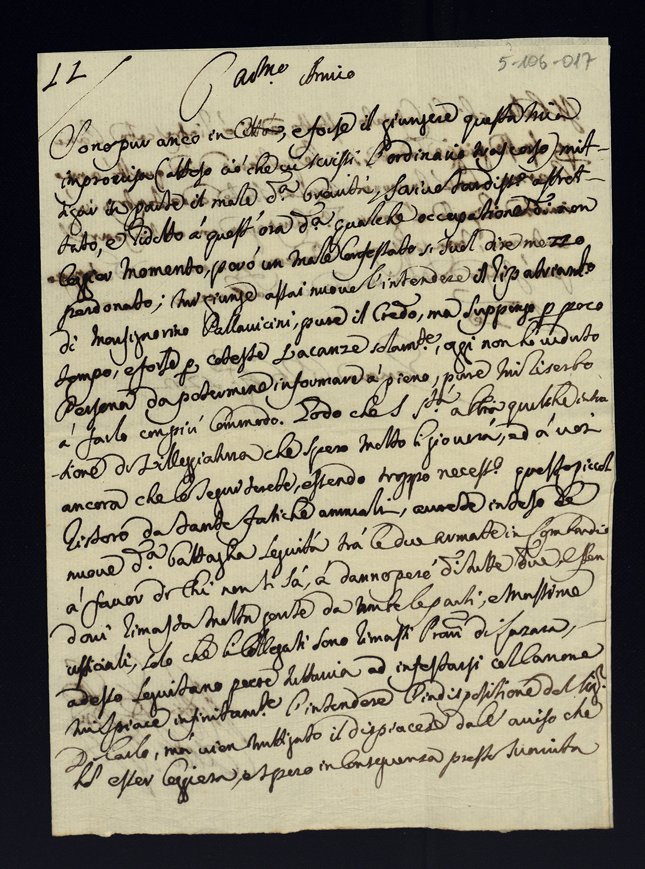 LL 5-106-017
Car.mo Amico
Sono pur anco in Città, e forse il giungere questa mia
improvisa (atteso ciò che vi scrissi l'ordinario trascorso) mit-
igar in parte il male d.a brevità, scrivo affret-
tato, e ridotto a quest'ora d.a qualche occupatione di non
leggier momento, però un male confessato si suol dire mezzo
perdonato; mi giunge assai nuovo l'intendere il
di Monsignorino Pallavicini, pure il Credo, ma suppongo p poco
tempo, e forse p coteste Vacanze solam.te, oggi non hò veduto
Persona da potermene informare à pieno, pure mi riserbo
à farlo con più commodo. Lodo che S. abbia qualche
-tione di Villeggiatura che spero molto li gioverà, ed à voi
ancora che lo seguiterete, essendo troppo necess.o questo piccol
ristoro da tante fatiche annuali, avrete inteso le
nuove d.a battaglia seguita trà le due armate in Lombardia
à favor di chi non si sà, à danno però di tutte due, essen
dovi rimasta molta gente da ambe le parti, e massime
ufficiali, solo che li Collegati sono rimasti Pron.i di Luzara,
adesso seguitano però tuttavia ad infestarsi col Canone
mi spiace infinitam.te l'intendere l'indispositione del Sig.r
D. Carlo, mà vien mitigato il dispiacere dall'aviso che
hò esser leggiera, e spero in conseguenza presto svanita